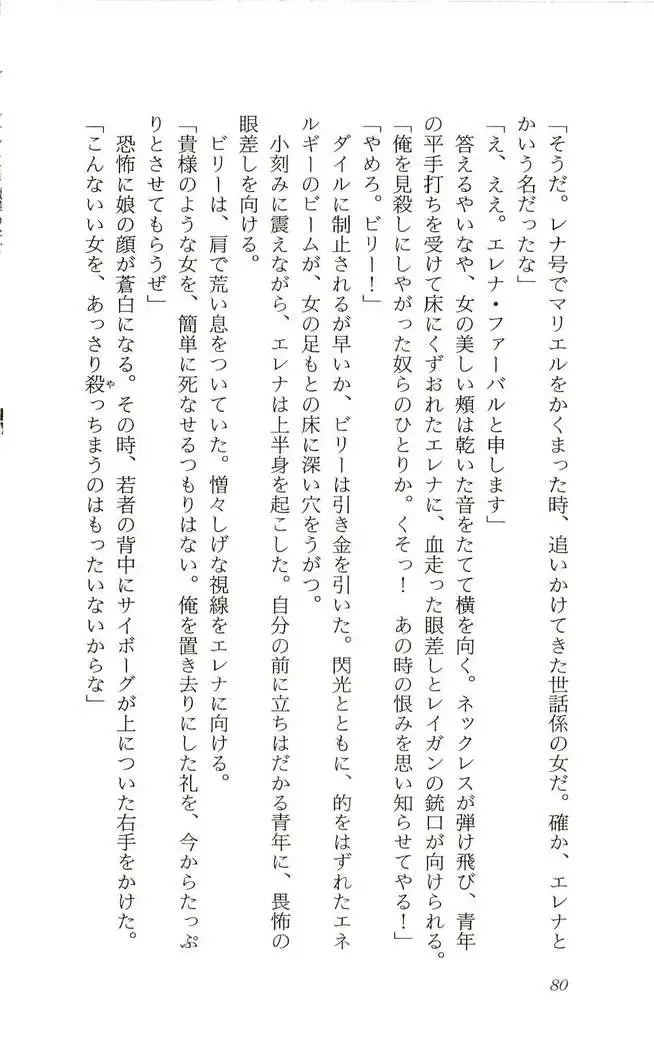 「そうだ。レナ号でマリエルをかくまった時、追いかけてきた世話係の女だ。確か、エレナと
かいう名だったな」
「え、ええ。エレナ・ファーバルと申します」
答えるやいなや、女の美しい頰は乾いた音をたてて横を向く。ネックレスが弾け飛び、青年
の平手打ちを受けて床にくずおれたエレナに、血走った眼差しとレイガンの銃口が向けられる。
「俺を見殺しにしやがった奴らのひとりか。くそっ！　あの時の恨みを思い知らせてやる！」
「やめろ。ビリー！」
ダイルに制止されるが早いか、ビリーは引き金を引いた。閃光とともに、的をはずれたエネ
ルギーのビームが、女の足もとの床に深い穴をうがつ。
小刻みに震えながら、エレナは上半身を起こした。自分の前に立ちはだかる青年に、畏怖の
眼差しを向ける。
ビリーは、肩で荒い息をついていた。憎々しげな視線をエレナに向ける。
「貴様のような女を、簡単に死なせるつもりはない。俺を置き去りにした礼を、今からたっぷ
りとさせてもらうぜ」
恐怖に娘の顔が蒼白になる。その時、若者の背中にサイボーグが上についた右手をかけた。
「こんないい女を、あっさり殺っちまうのはもったいないからな」
や
80